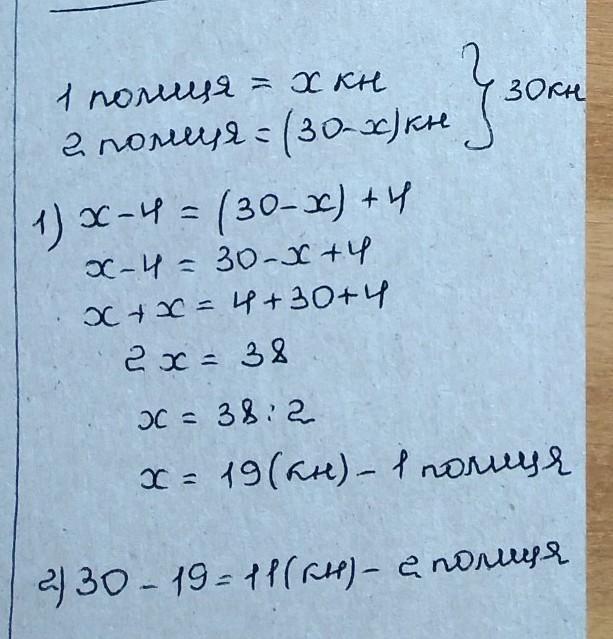 1 полиця = х кн
2 полиця = (30-х)кн } 30кн
1) х-4 = (30-х) +4
х-4 = 30-х+4
х+х = 4+30+4
2х = 38
х = 38:2
х = 19(кн) - 1 полиця
2) 30 - 19 = 11(кн) - 2 полиця